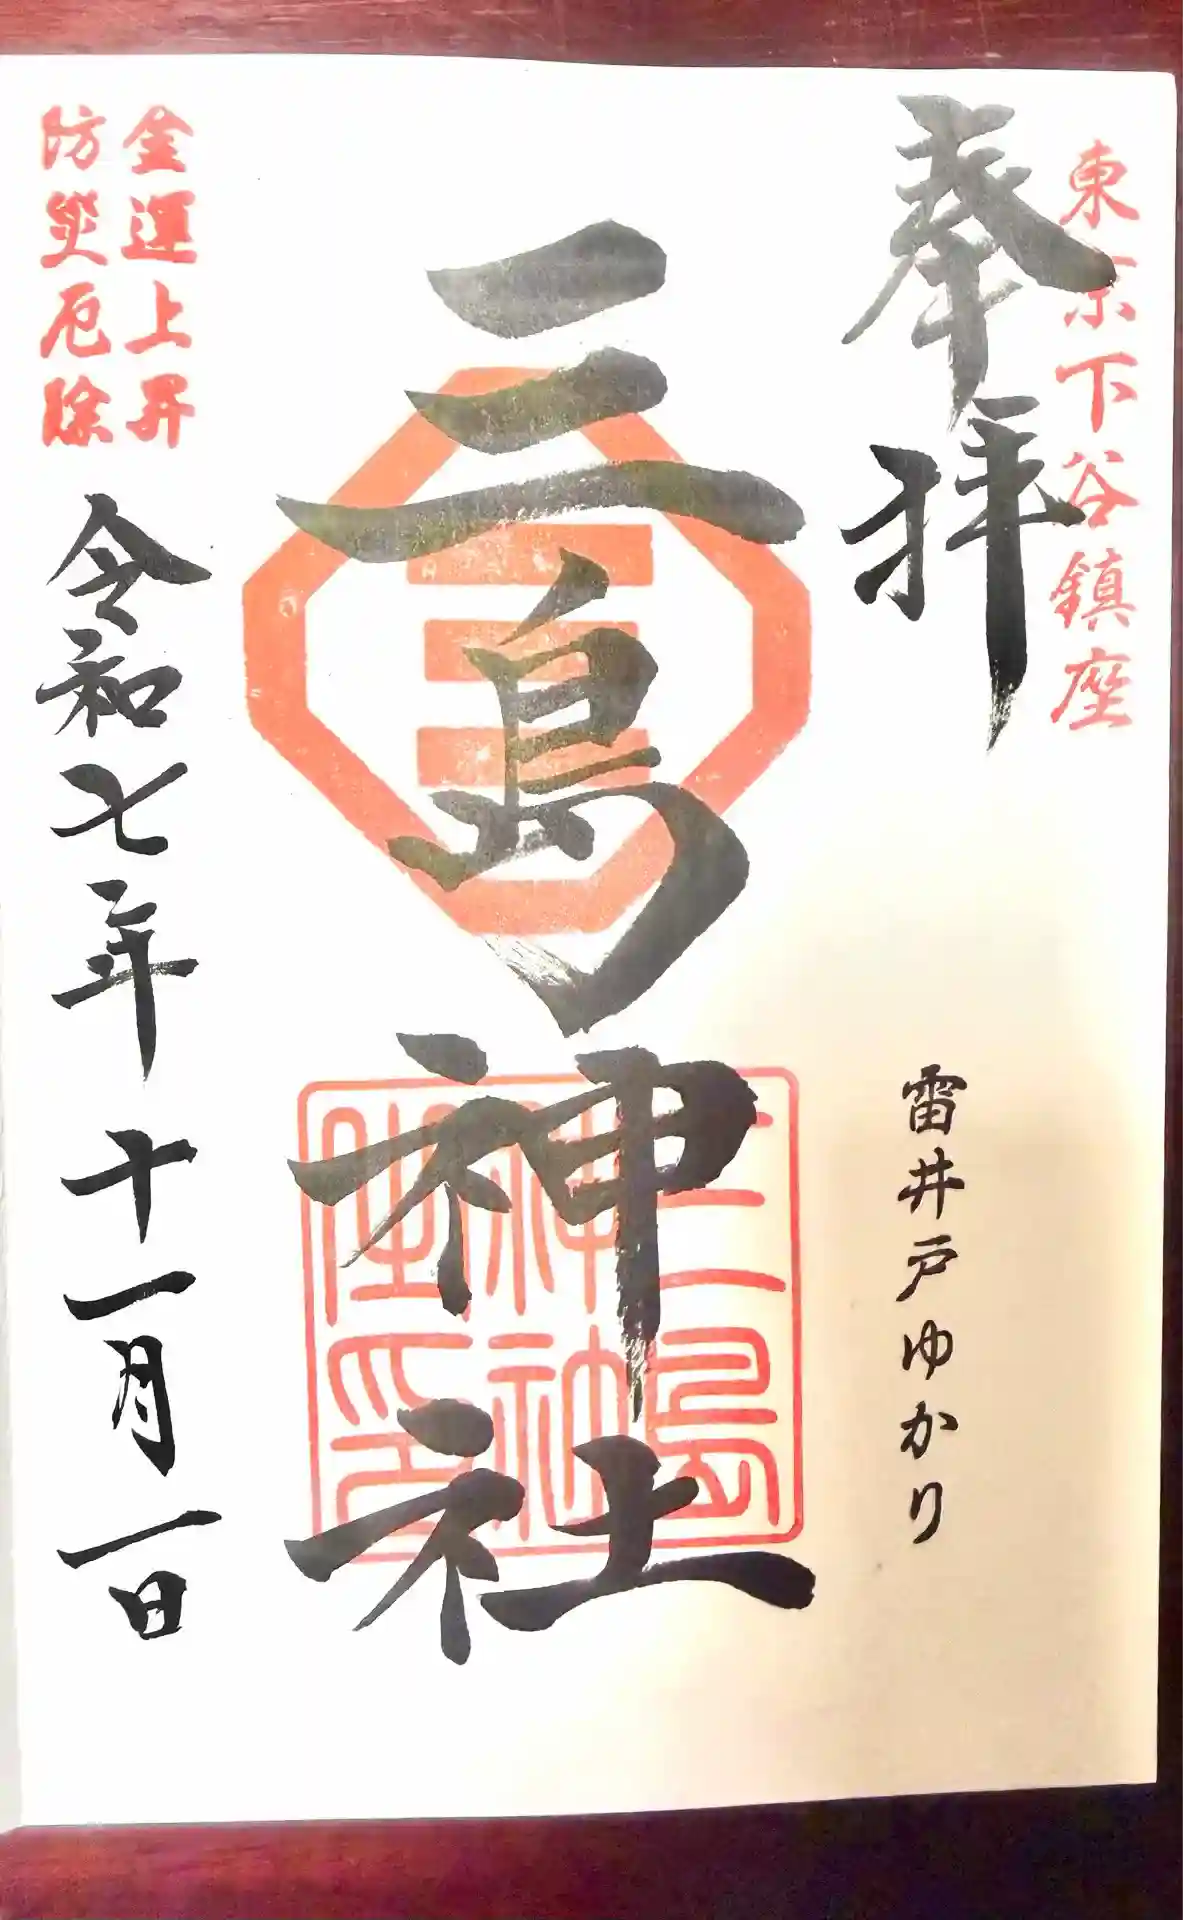 東京下谷鎮座
奉拝
雷井戸ゆかり
三島神社
三嶋
神社
金運上昇
防災厄除
令和七年十一月一日